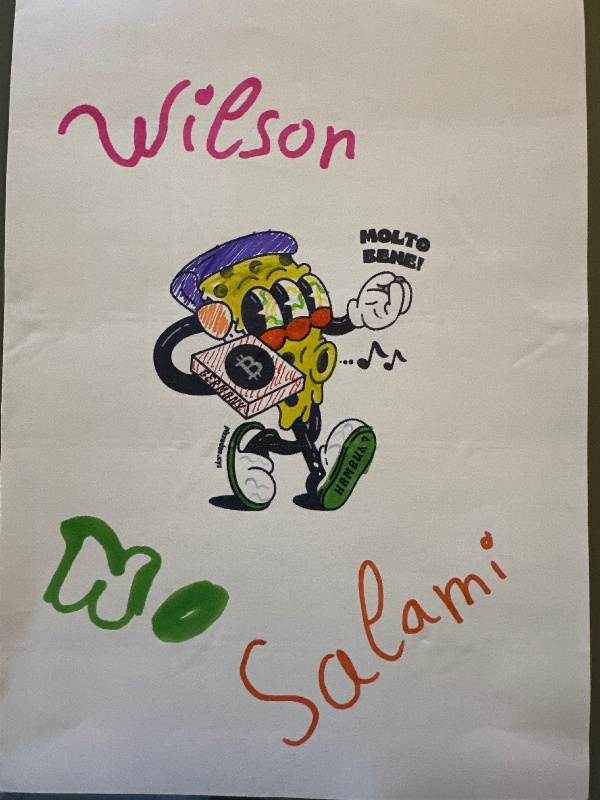 Wilson
MOLTO
BENE!
₿
HAMBUA?
No
Salami